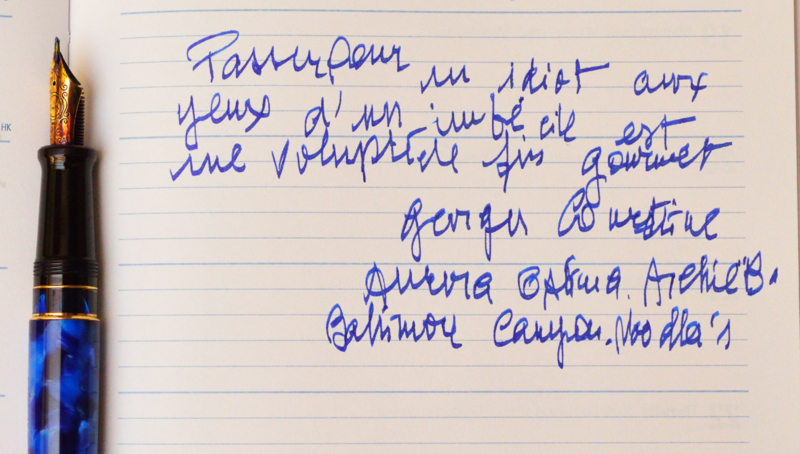 Passer pour un idiot aux
yeux d'un imbécile est
une volupté de fin gourmet
Georges Courteline
Aurora Optima. Archie B.
Baltimore Canyon. Noodler's
HK